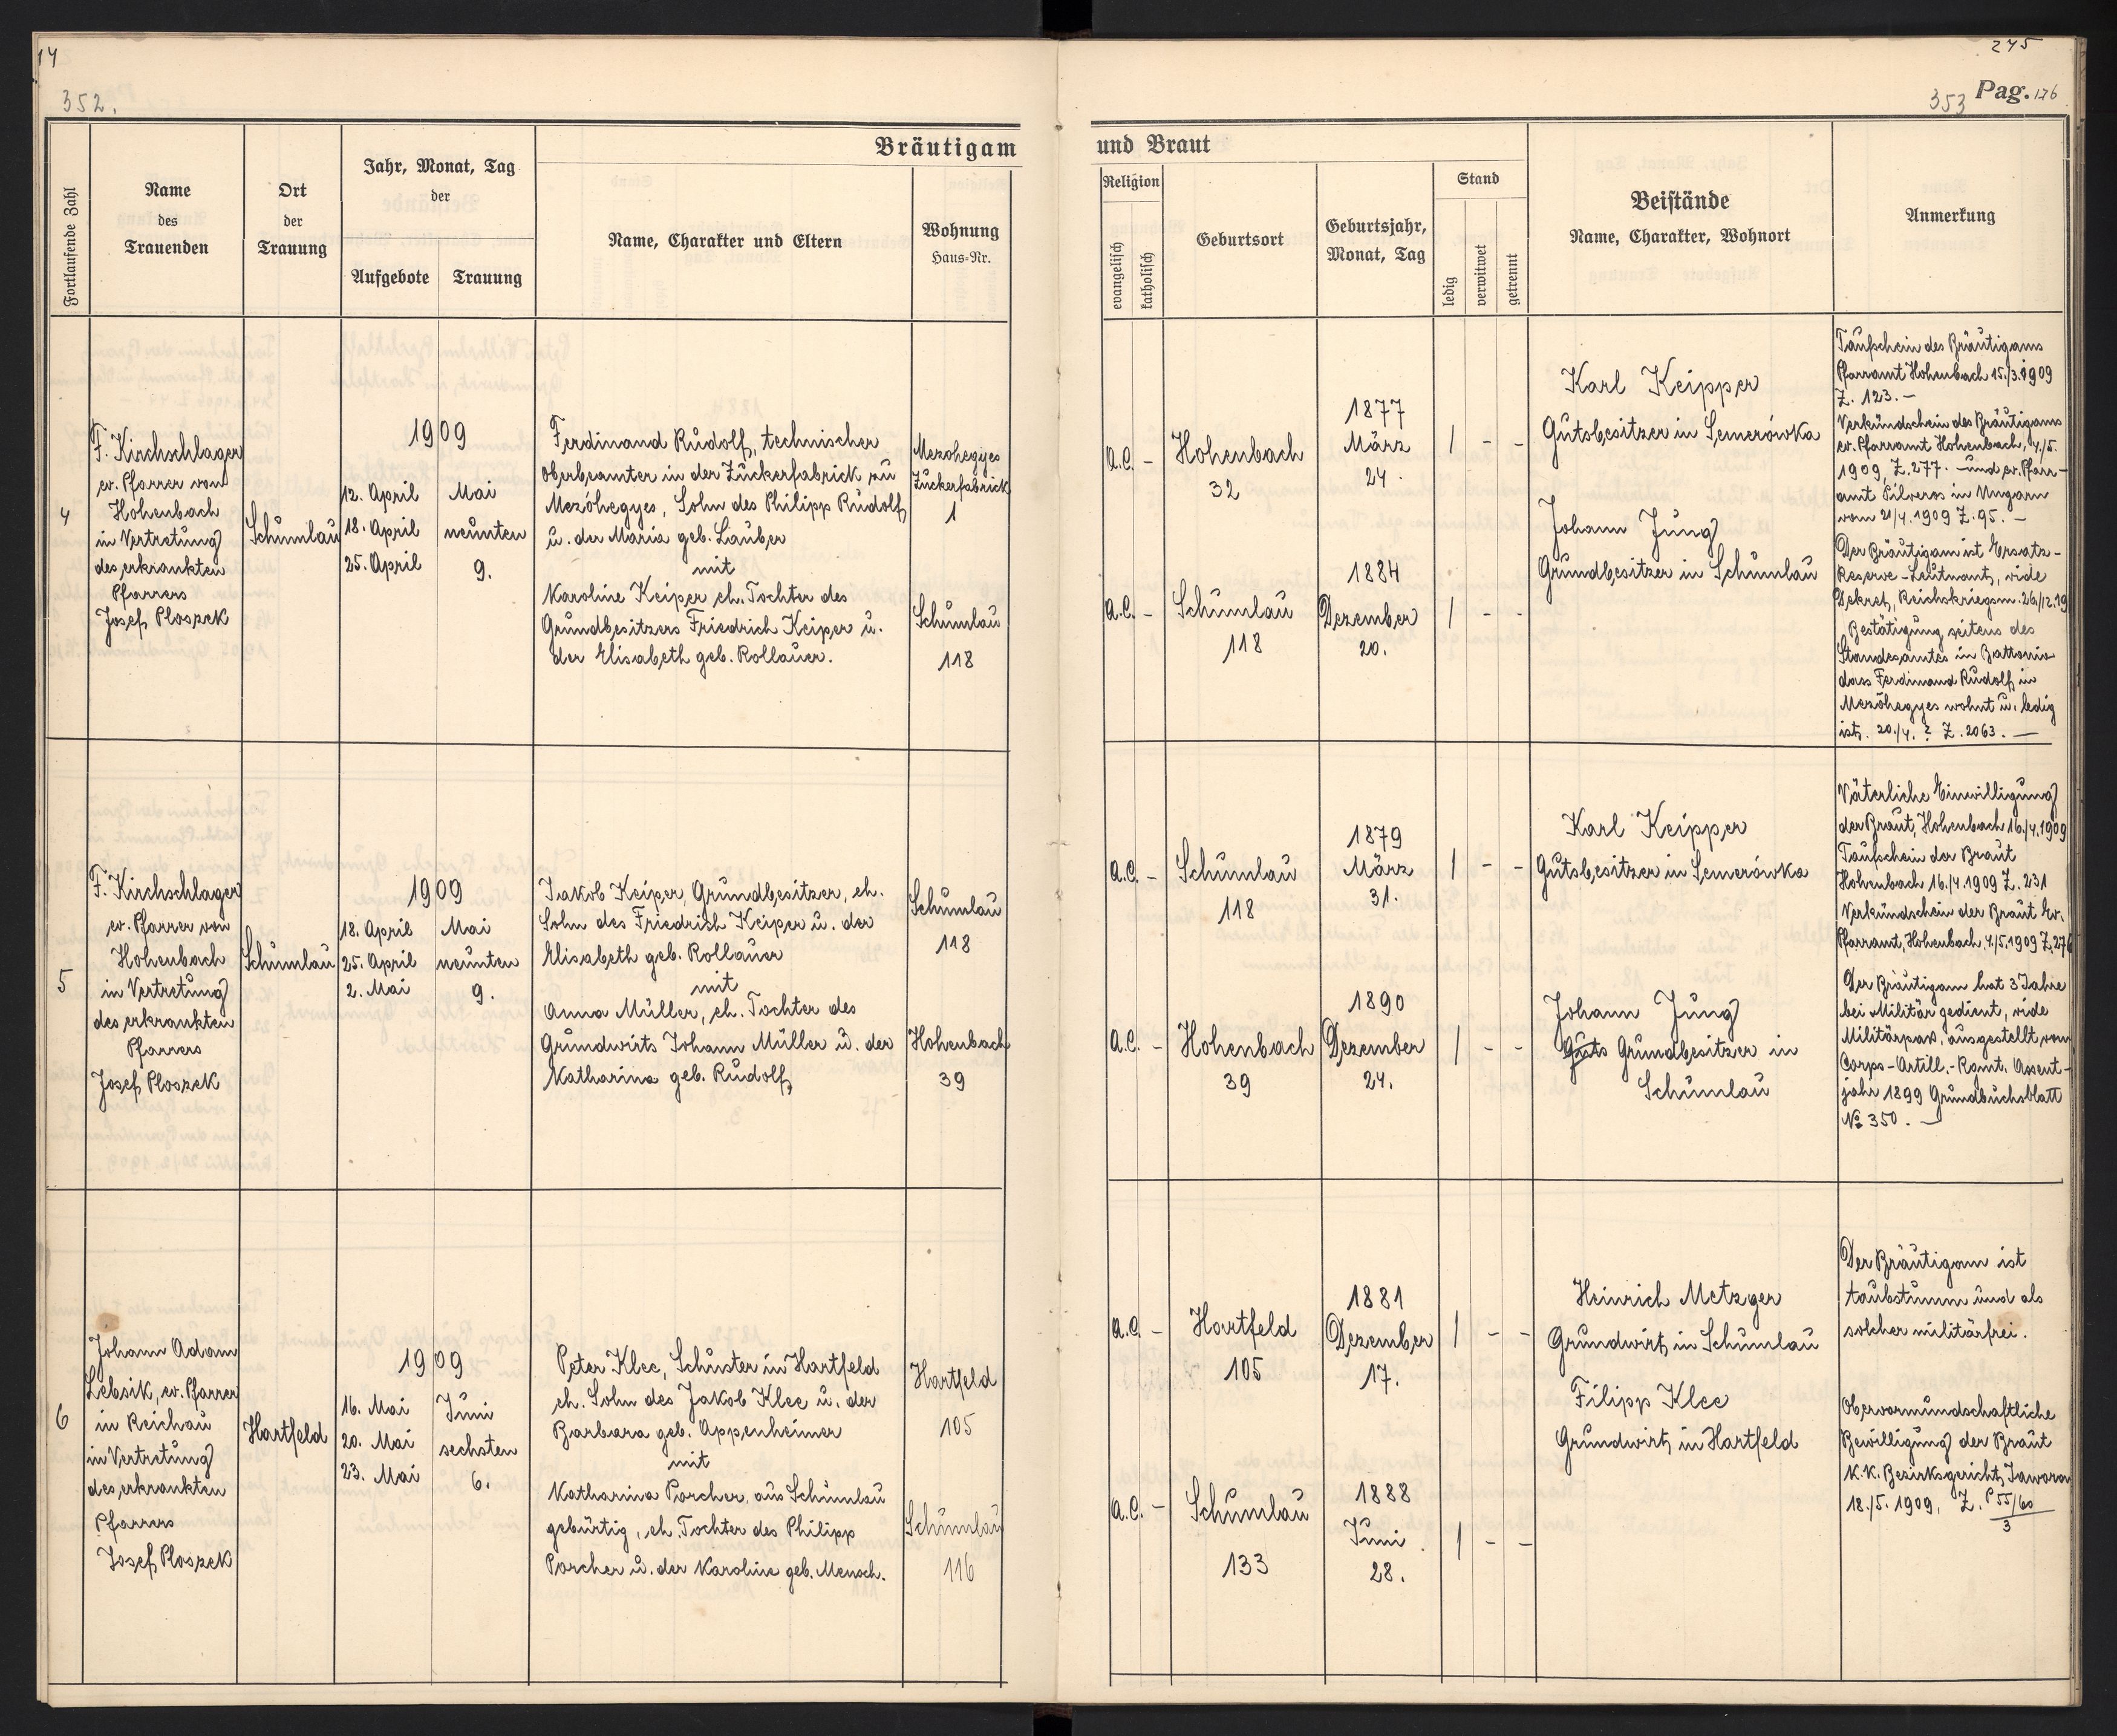 14
352.
245
353 Pag. 176
Bräutigam
und Braut
Fortlaufende Zahl
Name
des
Trauenden
Ort
der
Trauung
Jahr, Monat, Tag
der
Aufgebote
Trauung
Name, Charakter und Eltern
Wohnung
Haus-Nr.
Religion
evangelisch
katholisch
Geburtsort
Geburtsjahr,
Monat, Tag
Stand
ledig
verwitwet
getrennt
Beistände
Name, Charakter, Wohnort
Anmerkung
4
F. Kirchschlager
ev. Pfarrer von
Hohenbach
in Vertretung
des erkrankten
Pfarrers
Josef Ploszek
Schumlau
1909
12. April
18. April
25. April
Mai
neunten
9.
Ferdinand Rudolf, technischer
Oberbeamter in der Zuckerfabrick zu
Mezöhegyes, Sohn des Philipp Rudolf
u. der Maria geb. Lauber
mit
Karoline Keiper eh. Tochter des
Grundbesitzers Friedrich Keiper u.
der Elisabeth geb. Rollauer.
Mezohegyes
Zuckerfabrick
1
Schumlau
118
A.C. -
Hohenbach
32
1877
März
24.
1 - -
A.C. -
Schumlau
118
1884
Dezember
20.
1 - -
Karl Keipper
Gutsbesitzer in Semerówka
Johann Jung
Grundbesitzer in Schumlau
Taufschein des Bräutigams
Pfarramt Hohenbach 15./3.1909
Z. 123. -
Verkündschein des Bräutigams
ev. Pfarramt Hohenbach, 4./5.
1909, Z. 277. - und ev. Pfarr-
amt Pilveros in Ungarn
vom 21/4. 1909 Z. 95. -
Der Bräutigam ist Ersatz-
Reserve-Leutnant, vide
Dekret, Reichskriegsm. 26/12.19
Bestätigung seitens des
Standesamtes in Battonia
dass Ferdinand Rudolf in
Mezöhegyes wohnt u. ledig
ist. 20./4. ? Z. 2063. -
5
F. Kirchschlager
ev. Pfarrer von
Hohenbach
in Vertretung
des erkrankten
Pfarrers
Josef Ploszek
Schumlau
1909
18. April
25. April
2. Mai
Mai
neunten
9.
Jakob Keiper, Grundbesitzer, eh.
Sohn des Friedrich Keiper u. der
Elisabeth geb. Rollauer
mit
Anna Müller, eh. Tochter des
Grundwirts Johann Müller u. der
Katharina geb. Rudolf
Schumlau
118
Hohenbach
39
A.C. -
Schumlau
118
1879
März
31.
1 - -
A.C. -
Hohenbach
39
1890
Dezember
24.
1 - -
Karl Keipper
Gutsbesitzer in Semerówka
Johann Jung
Guts Grundbesitzer in
Schumlau
Väterliche Einwilligung
der Braut, Hohenbach 16./4.1909
Taufschein der Braut
Hohenbach 16./4 1909 Z. 231
Verkündschein der Braut Ev.
Pfarramt, Hohenbach, 4./5.1909 Z. 276
Der Bräutigam hat 3 Jahre
bei Militär gedient, vide
Militärpass, ausgestellt vom
Corps-Artill.-Rgmt. Assent-
jahr 1899 Grundbuchsblatt
№ 350. -
6
Johann Adam
Lebsik, ev. Pfarrer
in Reichau
in Vertretung
des erkrankten
Pfarrers
Josef Ploszek
Hartfeld
1909
16. Mai
20. Mai
23. Mai
Juni
sechsten
6.
Peter Klee, Schuster in Hartfeld
eh. Sohn des Jakob Klee u. der
Barbara geb. Appenheimer
mit
Katharina Porcher, aus Schumlau
gebürtig, eh. Tochter des Philipp
Porcher u. der Karoline geb. Mensch.
Hartfeld
105
Schumlau
116
A.C. -
Hartfeld
105
1881
Dezember
17.
1 - -
A.C. -
Schumlau
133
1888
Juni
28.
1 - -
Heinrich Metzger
Grundwirt in Schumlau
Filipp Klee
Grundwirt in Hartfeld
Der Bräutigam ist
taubstumm und als
solcher militärfrei.
Obervormundschaftliche
Bewilligung der Braut
K.K. Bezirksgericht Jaworow
18./5. 1909, Z. P 55/60
3